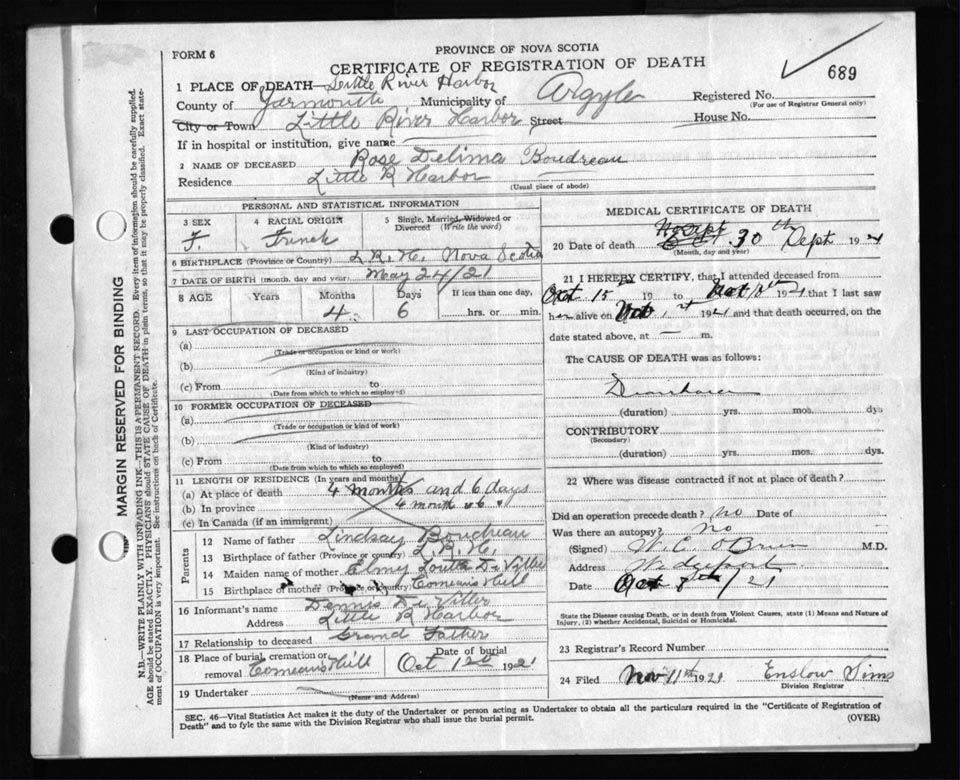 PROVINCE OF NOVA SCOTIA
FORM 6
CERTIFICATE OF REGISTRATION OF DEATH
689
1 PLACE OF DEATH—Little River Harbor
County of Yarmouth Municipality of Argyle Registered No.
(For use of Registrar General only)
City or Town Little River Harbor Street House No.
If in hospital or institution, give name
2 NAME OF DECEASED Rose Delima Boudreau
Residence Little R Harbor
(Usual place of abode)
MARGIN RESERVED FOR BINDING
N.B.—WRITE PLAINLY WITH UNFADING INK—THIS IS A PERMANENT RECORD. Every item of information should be carefully supplied.
AGE should be stated EXACTLY. PHYSICIANS should STATE CAUSE OF DEATH in plain terms, so that it may be properly classified. Exact state-
ment of OCCUPATION is very important. See instructions on back of Certificate.
PERSONAL AND STATISTICAL INFORMATION
3 SEX 4 RACIAL ORIGIN 5 Single, Married, Widowed or
Divorced (Write the word)
F. French
6 BIRTHPLACE (Province or Country) L.R.H. Nova Scotia
7 DATE OF BIRTH (month, day and year) May 24/21
8 AGE Years Months Days If less than one day,
4 6 hrs. or min.
9 LAST OCCUPATION OF DECEASED
(a)
(Trade or occupation or kind or work)
(b)
(Kind of industry)
(c) From to
(Date from which to which so employed)
10 FORMER OCCUPATION OF DECEASED
(a)
(Trade or occupation or kind of work)
(b)
(Kind of industry)
(c) From to
(Date from which to which so employed)
11 LENGTH OF RESIDENCE (In years and months)
(a) At place of death 4 months and 6 days
(b) In province 4 month 6
(c) In Canada (if an immigrant)
Parents
12 Name of father Lindsay Boudreau
13 Birthplace of father (Province or country) L.R.H.
14 Maiden name of mother Elmy Louise De Viller
15 Birthplace of mother (Province or country) Comeans Hill
16 Informant's name Dennis De Viller
Address Little R Harbor
17 Relationship to deceased Grand Father
18 Place of burial, cremation or Date of burial
removal Comeans Hill Oct 1 1921
19 Undertaker
(Name and Address)
MEDICAL CERTIFICATE OF DEATH
20 Date of death 30th Sept 1921
(Month, day and year)
21 I HEREBY CERTIFY, that I attended deceased from
Oct 15 19 to 1921 that I last saw
h alive on 1st 1921 and that death occurred, on the
date stated above, at — m.
The CAUSE OF DEATH was as follows:
(duration) yrs. mos. dys
CONTRIBUTORY
(Secondary)
(duration) yrs. mos. dys.
22 Where was disease contracted if not at place of death?
Did an operation precede death? no Date of
Was there an autopsy? no
(Signed) W.C. O'Brien M.D.
Address Wedgeport
Date Oct 8th/21
State the Disease causing Death, or in death from Violent Causes, state (1) Means and Nature of
Injury, (2) whether Accidental, Suicidal or Homicidal.
23 Registrar's Record Number
24 Filed Nov 11th 1921 Enslow Sims
Division Registrar
SEC. 46—Vital Statistics Act makes it the duty of the Undertaker or person acting as Undertaker to obtain all the particulars required in the "Certificate of Registration of
Death" and to fyle the same with the Division Registrar who shall issue the burial permit. (OVER)